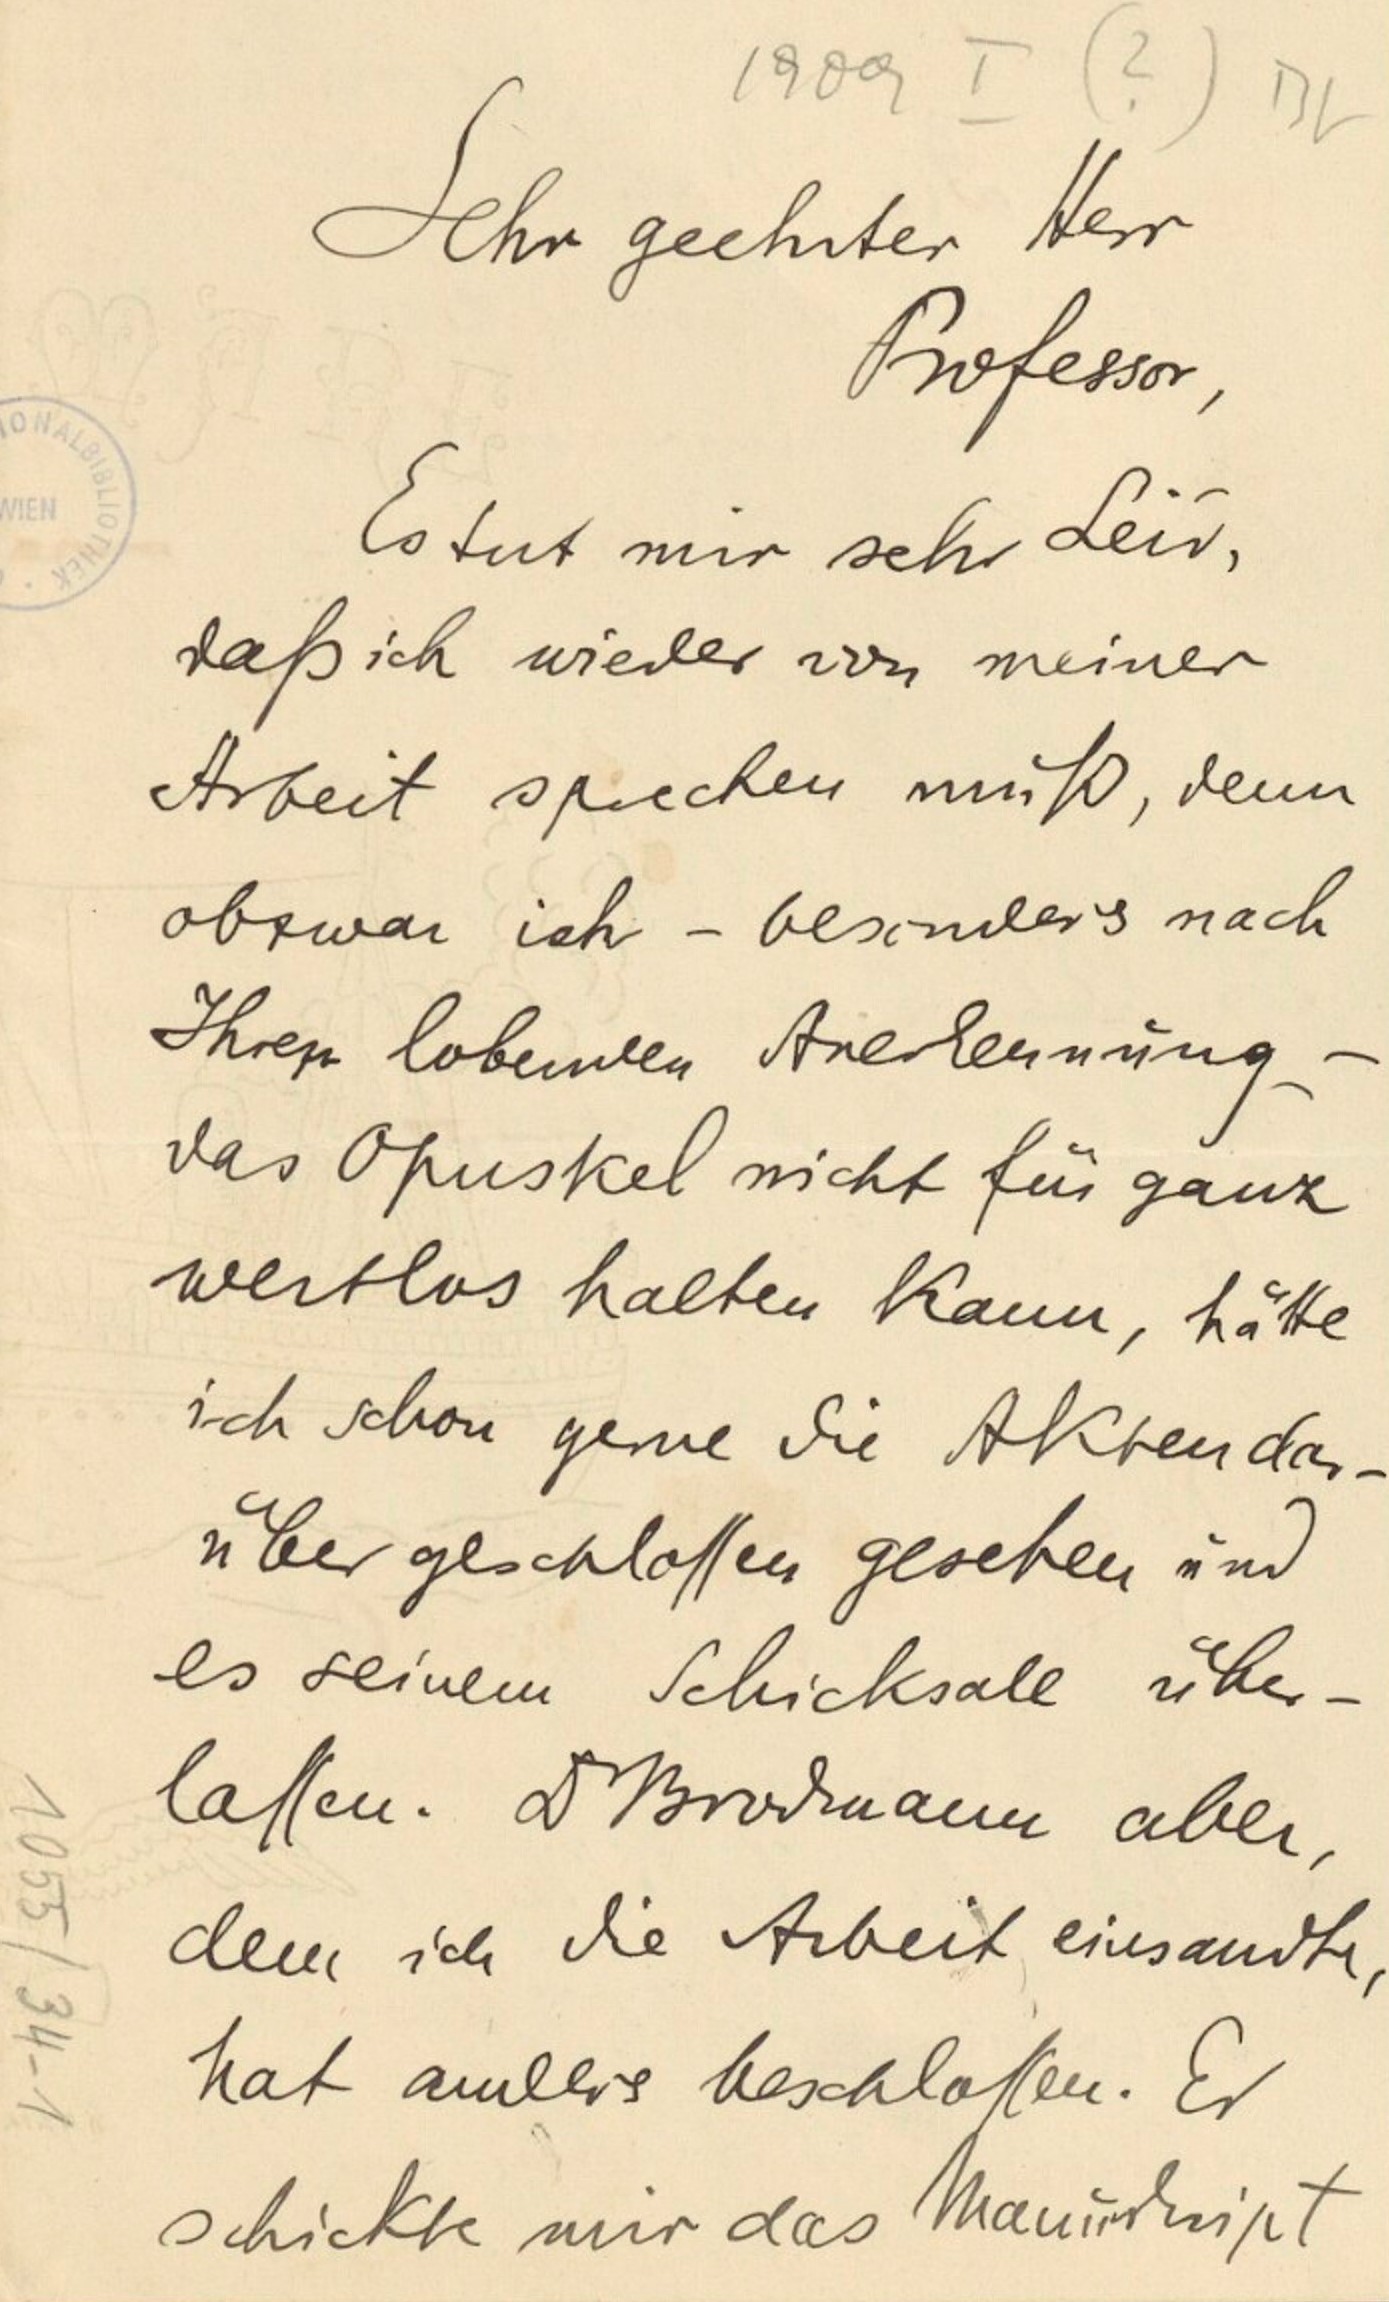 1909 I (?)
Sehr geehrter Herr
Professor,
Es tut mir sehr Leid,
daß ich wieder von meiner
Arbeit sprechen muß, denn
obzwar ich – besonders nach
Ihren lobenden Anerkennung –
das Opuskel nicht für ganz
wertlos halten kann, hätte
ich schon gerne die Akten dar-
über geschlossen gesehen und
es seinem Schicksale über-
lassen. Dr Brodmann aber,
dem ich die Arbeit einsandte,
hat anders beschlossen. Er
schickte mir das Manuskript
IONALBIBLIOTHEK
WIEN
1055/34-1